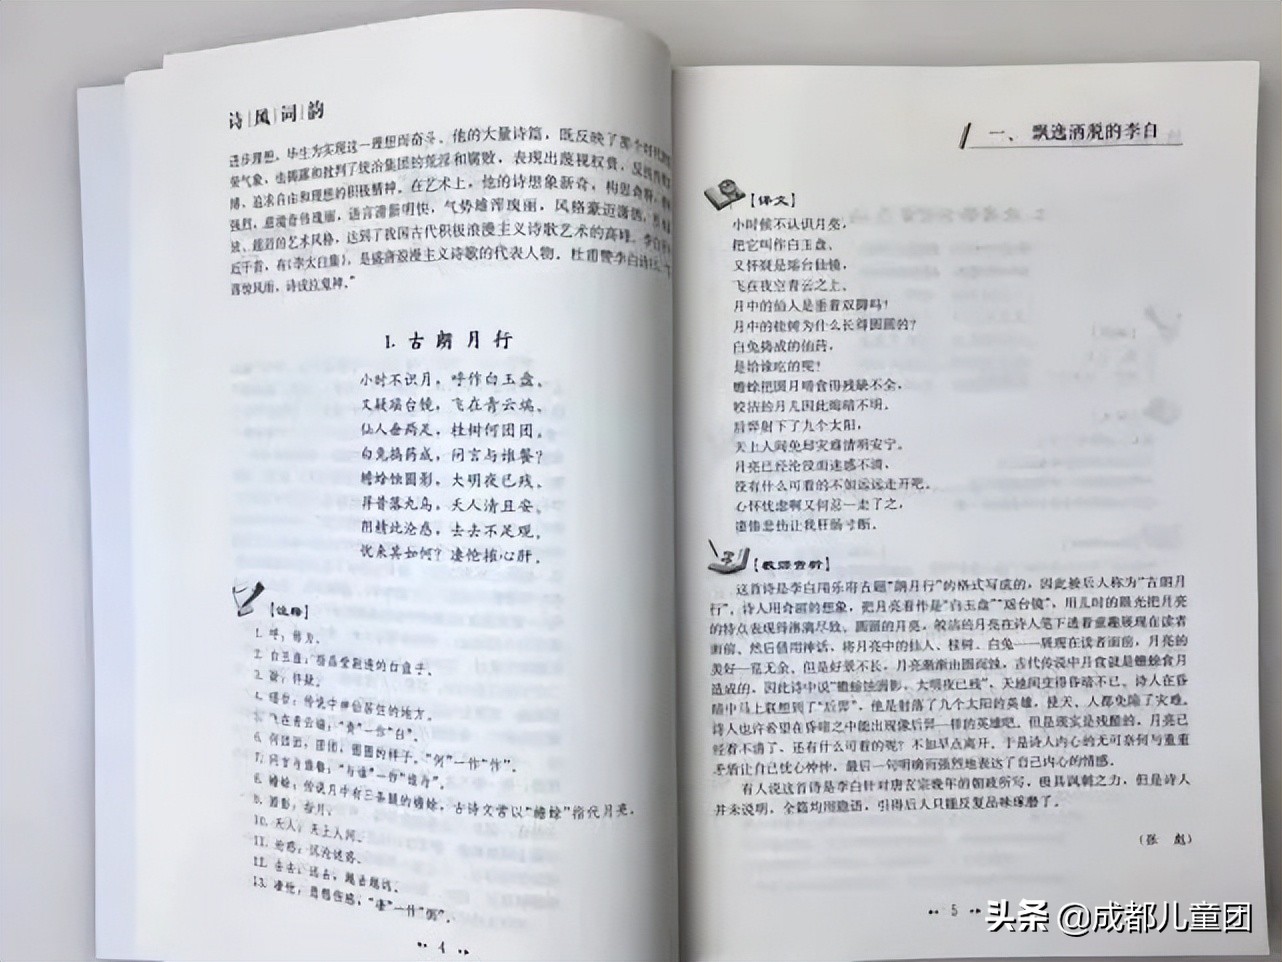 诗风词韵
进步理想，毕生为实现这一理想而奋斗。他的大量诗篇，既反映了那个时代的
荣气象，也揭露和批判了统治集团的荒淫和腐败，表现出蔑视权贵，反
博，追求自由和理想的积极精神。在艺术上，他的诗想象新奇，构思奇
强烈，意境奇伟瑰丽，语言清新明快，气势雄浑瑰丽，风格豪迈潇洒，
放、超迈的艺术风格，达到了我国古代积极浪漫主义诗歌艺术的高峰。李白
近千首，有《李太白集》，是盛唐浪漫主义诗歌的代表人物。杜甫赞李白诗
落惊风雨，诗成泣鬼神。”
1. 古朗月行
小时不识月，呼作白玉盘。
又疑瑶台镜，飞在青云端。
仙人垂两足，桂树何团团。
白兔捣药成，问言与谁餐？
蟾蜍蚀圆影，大明夜已残。
羿昔落九乌，天人清且安。
阴精此沦惑，去去不足观。
忧来其如何？凄怆摧心肝。
【注释】
1. 呼：称为。
2. 白玉盘：指晶莹剔透的白盘子。
3. 疑：怀疑。
4. 瑶台：传说中神仙居住的地方。
5. 飞在青云端：“青”一作“白”。
6. 何团团：团团，圆圆的样子。“何”一作“作”。
7. 问言与谁餐：“与谁”一作“谁与”。
8. 蟾蜍：传说月中有三条腿的蟾蜍，古诗文常以“蟾蜍”指代月亮。
9. 圆影：指月。
10. 天人：天上人间。
11. 沦惑：沉沦迷惑。
12. 去去：远去，越去越远。
13. 凄怆：悲愁伤感，“凄”一作“恻”。
4
一、飘逸洒脱的李白
【译文】
小时候不认识月亮，
把它叫作白玉盘。
又怀疑是瑶台仙镜，
飞在夜空青云之上。
月中的仙人是垂着双脚吗？
月中的桂树为什么长得圆圆的？
白兔捣成的仙药，
是给谁吃的呢？
蟾蜍把圆月啃食得残缺不全，
皎洁的月儿因此晦暗不明。
后羿射下了九个太阳，
天上人间免却灾难清明安宁。
月亮已经沦没而迷惑不清，
没有什么可看的不如远远走开吧。
心怀忧虑啊又何忍一走了之，
凄惨悲伤让我肝肠寸断。
【教师赏析】
这首诗是李白用乐府古题“朗月行”的格式写成的，因此被后人称为“古朗月
行”。诗人用奇丽的想象，把月亮看作是“白玉盘”“瑶台镜”，用儿时的眼光把月亮
的特点表现得淋漓尽致。圆圆的月亮，皎洁的月亮在诗人笔下透着童趣展现在读者
面前。然后借用神话，将月亮中的仙人、桂树、白兔一一展现在读者面前，月亮的
美好一览无余。但是好景不长，月亮渐渐由圆而蚀，古代传说中月食就是蟾蜍食月
造成的，因此诗中说“蟾蜍蚀圆影，大明夜已残”，天地间变得昏暗不已。诗人在昏
暗中马上联想到了“后羿”，他是射落了九个太阳的英雄，使天、人都免除了灾难。
诗人也许希望在昏暗之中能出现像后羿一样的英雄吧。但是现实是残酷的，月亮已
经看不清了，还有什么可看的呢？不如早点离开。于是诗人内心的无可奈何与重重
矛盾让自己忧心忡忡，最后一句明确而强烈地表达了自己内心的情感。
有人说这首诗是李白针对唐玄宗晚年的朝政所写，极具讽刺之力，但是诗人
并未说明，全篇均用隐语，引得后人只能反复品味琢磨了。
（张 彪）
5
头条 @成都儿童团